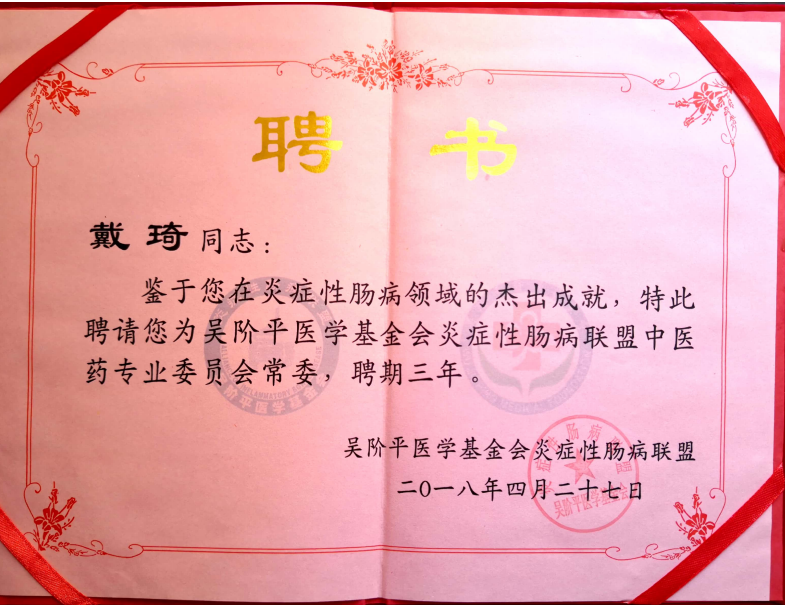 聘书
戴琦同志：
鉴于您在炎症性肠病领域的杰出成就，特此
聘请您为吴阶平医学基金会炎症性肠病联盟中医
药专业委员会常委，聘期三年。
吴阶平医学基金会炎症性肠病联盟
二〇一八年四月二十七日
吴阶平医学基金会